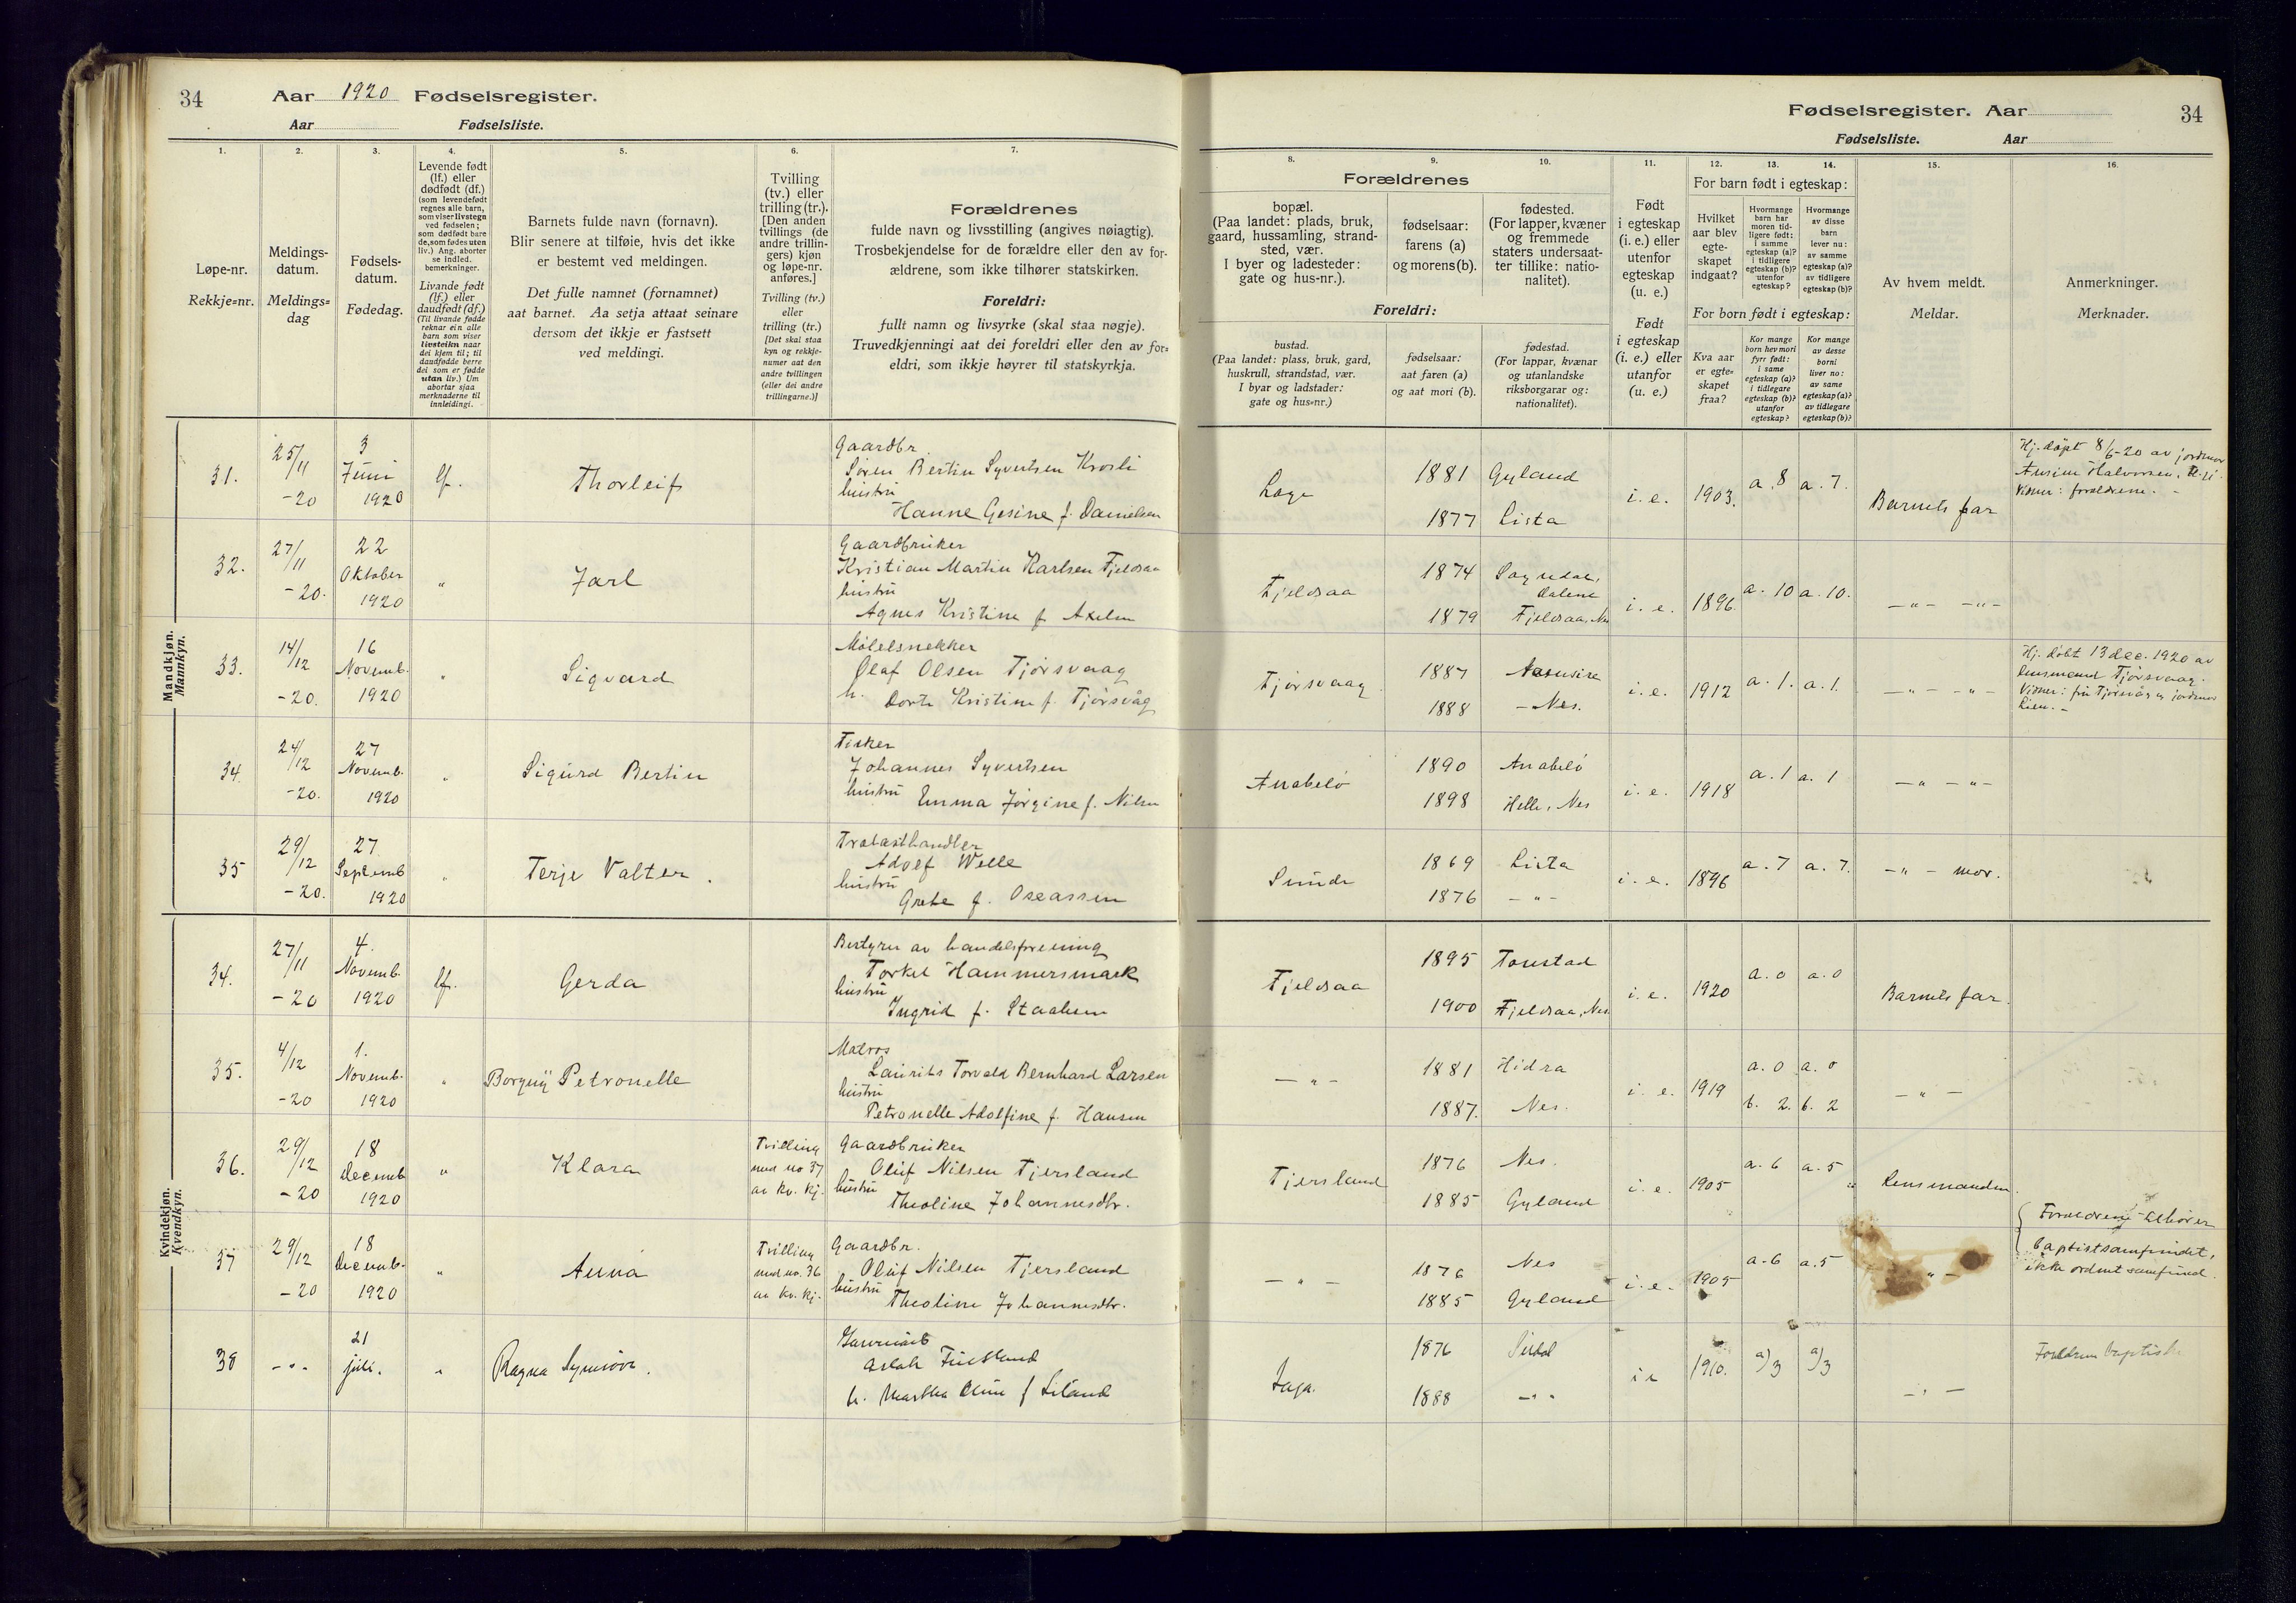 34 Aar 1920 Fødselsregister.
Aar Fødselsliste.
1. 2. 3. 4. 5. 6. 7.
Løpe-nr.
Rekkje-nr.
Meldings-
datum.
Meldings-
dag
Fødsels-
datum.
Fødedag.
Levende født
(lf.) eller
dødfødt (df.)
(som levendefødt
regnes alle barn,
som viser livstegn
ved fødselen;
som dødfødt bare
de, som fødes uten
liv.) Ang. aborter
se indled.
bemerkninger.
Livande født
(lf.) eller
daudfødt (df.)
(Til livande fødde
reknar ein alle
barn som viser
livsteikn naar
dei kjem til; til
daudfødde berre
dei som er fødde
utan liv.) Um
abortar sjaa
merknaderne til
innleidingi.
Barnets fulde navn (fornavn).
Blir senere at tilføie, hvis det ikke
er bestemt ved meldingen.
Det fulle namnet (fornamnet)
aat barnet. Aa setja attaat seinare
dersom det ikkje er fastsett
ved meldingi.
Tvilling
(tv.) eller
trilling (tr.).
[Den anden
tvillings (de
andre trillin-
gers) kjøn
og løpe-nr.
anføres.]
Tvilling (tv.)
eller
trilling (tr.)
[Det skal staa
kyn og rekkje-
numer aat den
andre tvillingen
(eller dei andre
trillingarne.)]
Forældrenes
fulde navn og livsstilling (angives nøiagtig).
Trosbekjendelse for de forældre eller den av for-
ældrene, som ikke tilhører statskirken.
Foreldri:
fullt namn og livsyrke (skal staa nøgje).
Truvedkjenningi aat dei foreldri eller den av for-
eldri, som ikkje høyrer til statskyrkja.
Mandkjøn.
Mannkyn.
31. 25/11 -20 3 Juni 1920 lf. Thorleif
Gaardbr.
Søren Bertin Syvertsen Krosli
hustru
Hanne Gesine f. Danielsen
32. 27/11 -20. 22 Oktober 1920 " Jarl
Gaardbruker
Kristian Martin Karlsen Fjeldsaa
hustru
Agnes Kristine f. Axelsen
33. 14/12 -20. 16 Novemb. 1920 " Sigvard
Møbelsnekker
Olaf Olsen Tjørsvaag
h. Dorte Kristine f. Tjørsvåg
34. 24/12 -20. 27 Novemb. 1920 " Sigurd Bertin
Fisker
Johannes Syvertsen
hustru Emma Jørgine f. Nilsen
35 29/12 -20. 27. Septemb 1920 " Terje Valter.
Trælasthandler
Adolf Welle
hustru
Grete f. Oseassen
Kvindekjøn.
Kvendkyn.
34. 27/11 -20 4. Novemb. 1920 lf. Gerda
Bestyrer av handelsforening
Torkel Hammersmark
hustru
Ingrid f. Staalesen
35. 4/12 -20 1. Novemb. 1920 " Borgny Petronelle
Matros
Laurits Torvald Bernhard Larsen
hustru
Petronelle Adolfine f. Hansen
36. 29/12 -20 18 Decemb 1920 " Klara
Tvilling
med no 37
av kv. kj.
Gaardbruker
Oluf Nilsen Tjersland
hustru
Theoline Johannesdtr.
37 29/12 -20 18 Decemb. 1920 " Anna
Tvilling
med no. 36
av kv. kj.
Gaardbr.
Oluf Nilsen Tjersland
hustru
Theoline Johannesdtr.
38 - " - 21 juli. " Ragna Synnøve.
h. Martha Oline f Liland
Fødselsregister. Aar 34
Fødselsliste. Aar
8. 9. 10. 11. 12. 13. 14. 15. 16.
Forældrenes
bopæl.
(Paa landet: plads, bruk,
gaard, hussamling, strand-
sted, vær.
I byer og ladesteder:
gate og hus-nr.).
fødselsaar:
farens (a)
og morens (b).
fødested.
(For lapper, kvæner
og fremmede
staters undersaat-
ter tillike: natio-
nalitet).
Foreldri:
bustad.
(Paa landet: plass, bruk, gard,
huskrull, strandstad, vær.
I byar og ladstader:
gate og hus-nr.)
fødselsaar:
aat faren (a)
og aat mori (b).
fødestad.
(For lappar, kvænar
og utanlandske
riksborgarar og:
nationalitet).
Født
i egteskap
(i. e.) eller
utenfor
egteskap
(u. e.)
Født
i egteskap
(i. e.) eller
utanfor
(u. e.)
For barn født i egteskap:
Hvilket
aar blev
egte-
skapet
indgaat?
Hvormange
barn har
moren tid-
ligere født:
i samme
egteskap (a)?
i tidligere
egteskap (b)?
utenfor
egteskap?
Hvormange
av disse
barn
lever nu:
av samme
egteskap (a)?
av tidligere
egteskap (b)?
For born født i egteskap:
Kva aar
er egte-
skapet
fraa?
Kor mange
born hev mori
fyrr født:
i same
egteskap (a)?
i tidlegare
egteskap (b)?
utanfor
egteskap?
Kor mange
av desse
borni
liver no:
av same
egteskap (a)?
av tidlegare
egteskap (b)?
Av hvem meldt.
Meldar.
Anmerkninger.
Merknader.
Løge 1881 Gyland i. e. 1903. a. 8 a. 7. Barnets far
1877 Lista
Hj. døpt 8/6-20 av jordmor
Halvorsen,
Vidner: forældrene. -
Fjeldsaa 1874 Sogndal, Dalene i. e. 1896. a. 10 a. 10. - " - - " -
1879 Fjeldsaa, Nes
Tjørsvaag 1887 i. e. 1912 a. 1. a. 1. - " - - " -
1888 - Nes.
Hj. døbt 13 dec. 1920 av
lensmand Tjørsvaag.
Vidner: fru Tjørsvåg og jordmor
Lien. -
Anabeló 1890 Anabeló i. e. 1918 a. 1 a. 1 - " - - " -
1898 Helle, Nes
Sunde 1869 Lista i. e. 1896 a. 7 a. 7. - " - mor.
1876 - " -
Fjeldsaa 1895 Tonstad i. e. 1920 a. 0 a. 0 Barnets far.
1900 Fjeldsaa, Nes
- " - 1881 Hidra i. e. 1919 a. 0 a. 0 - " -
1887. Nes. b. 2. b. 2
Tjersland 1876 Nes. i. e. 1905 a. 6 a. 5 Lensmanden.
1885 Gyland
- " - 1876 Nes i. e. 1905 a. 6 a. 5 " -
1885 Gyland
Forældrene tilhører
baptistsamfundet,
ikke ordnet samfund.
1876 i e 1910. a)3 a)3 - " -
1888 - " -